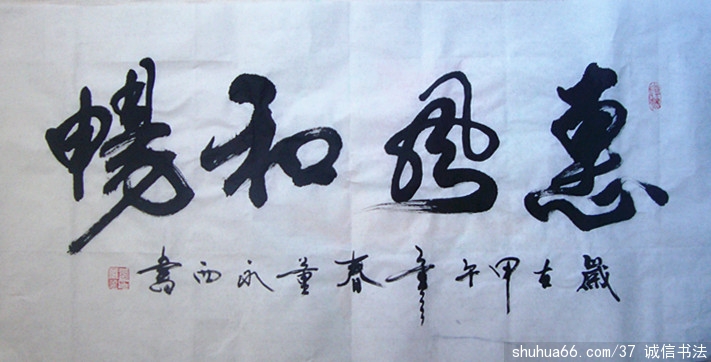 惠風和暢
歲在甲午年春董永西書
shuhua66.com/37 诚信书法